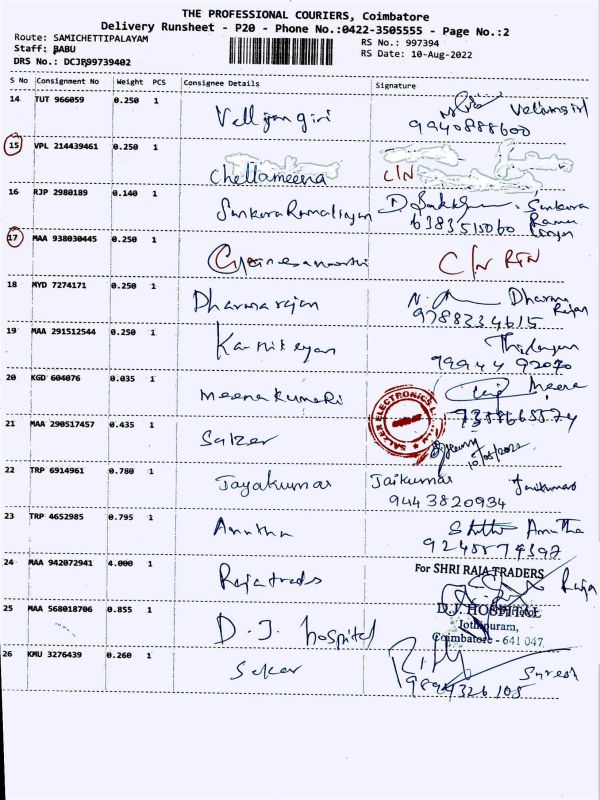 THE PROFESSIONAL COURIERS, Coimbatore
Delivery Runsheet - P20 - Phone No.:0422-3505555 - Page No.:2
Route: SAMICHETTIPALAYAM
RS No.: 997394
Staff: BABU
RS Date: 10-Aug-2022
DRS No.: DCJR99739402
S No Consignment No Weight PCS Consignee Details Signature
14 TUT 966059 0.250 1 Vellyangiri Vellyangiri
9940888600
15 VPL 214439461 0.250 1
Chellameena C/N
16 RJP 2980189 0.140 1 SankaraRamalingam D. Sankara
6383515060 Rama
17 MAA 938030445 0.250 1
Ganesamoorthi C/N RTN
18 MYD 7274171 0.250 1 Dharmarajan N. Dharma
Rajan
9788234615
19 MAA 291512544 0.250 1 Karthikeyan
99944 92070
20 KGD 604076 0.035 1 Meenakumari Meena
7358665574
SALZER ELECTRONICS
21 MAA 290517457 0.435 1 Salzer
22 TRP 6914961 0.780 1 Jayakumar Jaikumar
9443820934
23 TRP 4652985 0.795 1 Anutha Anutha
24 MAA 942072941 4.000 1 Rajatrads For SHRI RAJA TRADERS
Raja
25 MAA 568018706 0.855 1 D.J. hospital D.J. HOSPITAL
Jothipuram,
Coimbatore - 641 047
26 KMU 3276439 0.260 1 Seker Suresh
9894326105